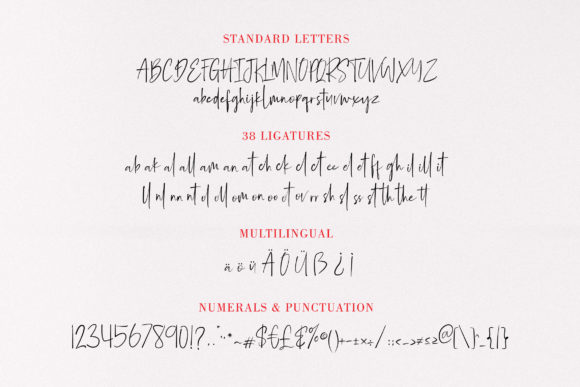 STANDARD LETTERS
ABCDEFGHIJKLMNOPQRSTUVWXYZ
abcdefghijklmnopqrstuvwxyz
38 LIGATURES
ab ak al all am an at ch ck cl ct ee el et ff gh il ill it
ll nl nn nt ol oll om on oo ot ov rr sh sl ss st th the tt
MULTILINGUAL
ä ö ü Ä Ö Ü ß ¿ ¡
NUMERALS & PUNCTUATION
1234567890!?
~#$€£&%©()+-±×÷/:;<_>≠≤≥@[\]-{|}